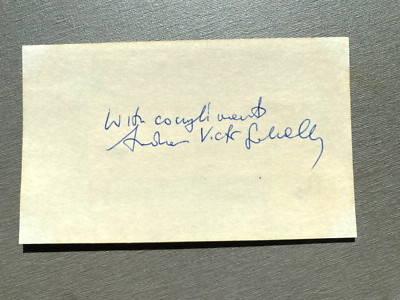 With compliments
Andrew Victor Schally